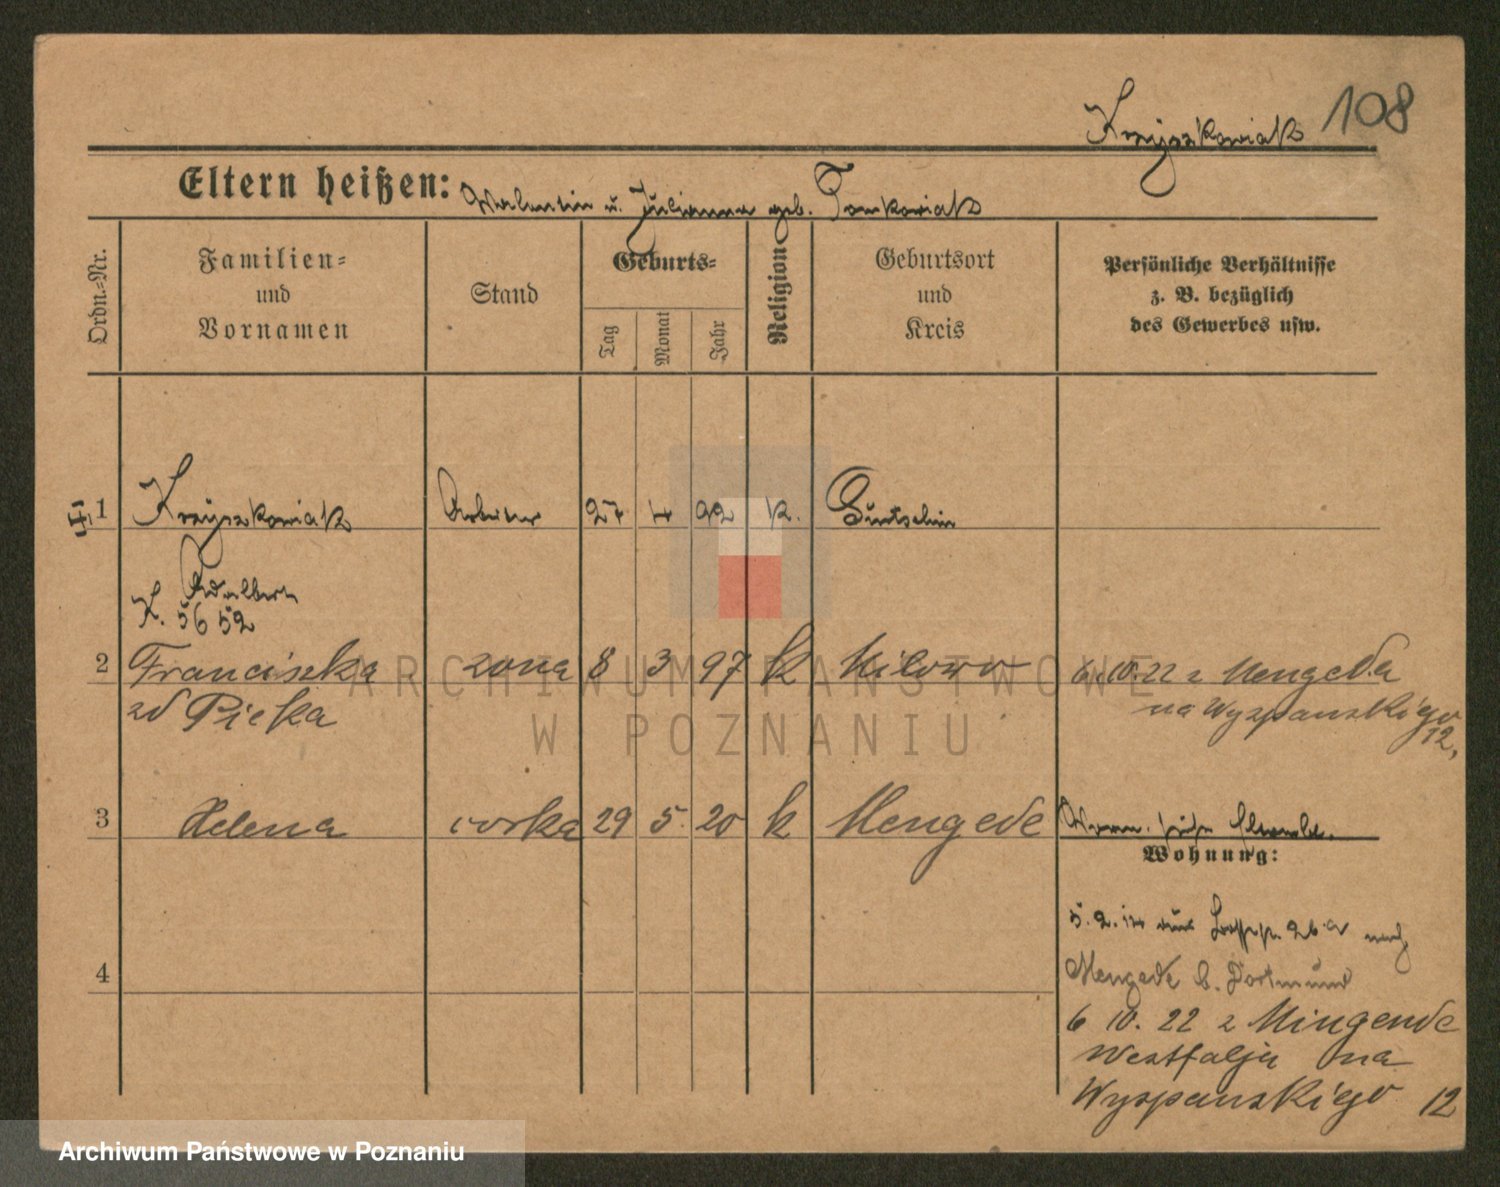 Krzyszkowiak 108
Eltern heißen: Valentin u. Julianna geb. Tomkowiak
Ordn.-Nr.
Familien-
und
Vornamen
Stand
Geburts-
Tag
Monat
Jahr
Religion
Geburtsort
und
Kreis
Persönliche Verhältnisse
z. B. bezüglich
des Gewerbes usw.
1 Krzyszkowiak Arbeiter 27 4 92 k.
Adalbert
K. 5652
2 Franciszka żona 8 3 97 k Milowo 6.10.22 z Mengeda
zd Pieka na Wyspanskiego
12,
3 Helena córka 29 5 20 k Mengede
Wohnung:
5.2.14 aus 26a nach
Mengede b. Dortmund
4
6 10. 22 z Mingende
Westfalju na
Wyspanskiego 12
ARCHIWUM PAŃSTWOWE
W POZNANIU
Archiwum Państwowe w Poznaniu